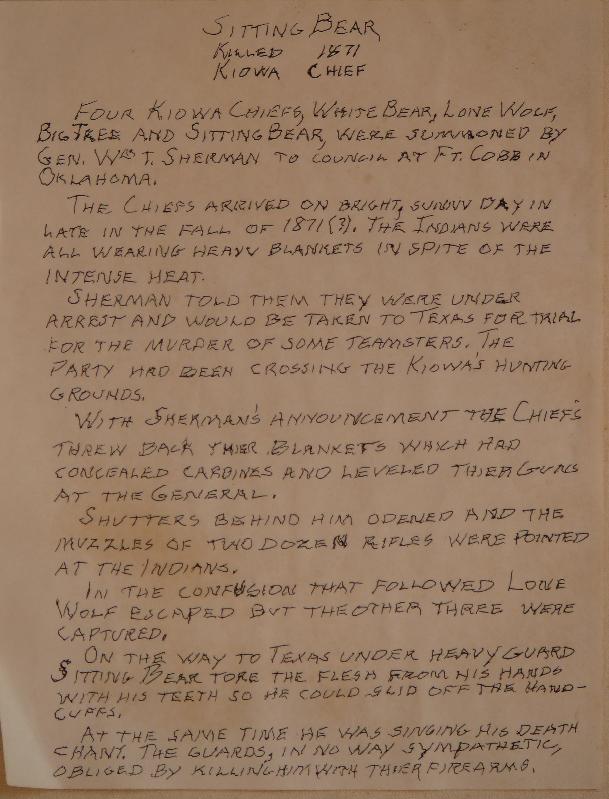 SITTING BEAR
KILLED 1871
KIOWA CHIEF
FOUR KIOWA CHIEFS, WHITE BEAR, LONE WOLF,
BIG TREE AND SITTING BEAR, WERE SUMMONED BY
GEN. WM T. SHERMAN TO COUNCIL AT FT. COBB IN
OKLAHOMA.
THE CHIEFS ARRIVED ON BRIGHT, SUNNY DAY IN
LATE IN THE FALL OF 1871(?). THE INDIANS WERE
ALL WEARING HEAVY BLANKETS IN SPITE OF THE
INTENSE HEAT.
SHERMAN TOLD THEM THEY WERE UNDER
ARREST AND WOULD BE TAKEN TO TEXAS FOR TRIAL
FOR THE MURDER OF SOME TEAMSTERS. THE
PARTY HAD BEEN CROSSING THE KIOWA'S HUNTING
GROUNDS.
WITH SHERMAN'S ANNOUNCEMENT THE CHIEFS
THREW BACK THIER BLANKETS WHICH HAD
CONCEALED CARBINES AND LEVELED THIER GUNS
AT THE GENERAL.
SHUTTERS BEHIND HIM OPENED AND THE
MUZZLES OF TWO DOZEN RIFLES WERE POINTED
AT THE INDIANS.
IN THE CONFUSION THAT FOLLOWED LONE
WOLF ESCAPED BUT THE OTHER THREE WERE
CAPTURED.
ON THE WAY TO TEXAS UNDER HEAVY GUARD
SITTING BEAR TORE THE FLESH FROM HIS HANDS
WITH HIS TEETH SO HE COULD SLID OFF THE HAND-
CUFFS.
AT THE SAME TIME HE WAS SINGING HIS DEATH
CHANT. THE GUARDS, IN NO WAY SYMPATHETIC,
OBLIGED BY KILLING HIM WITH THIER FIREARMS.